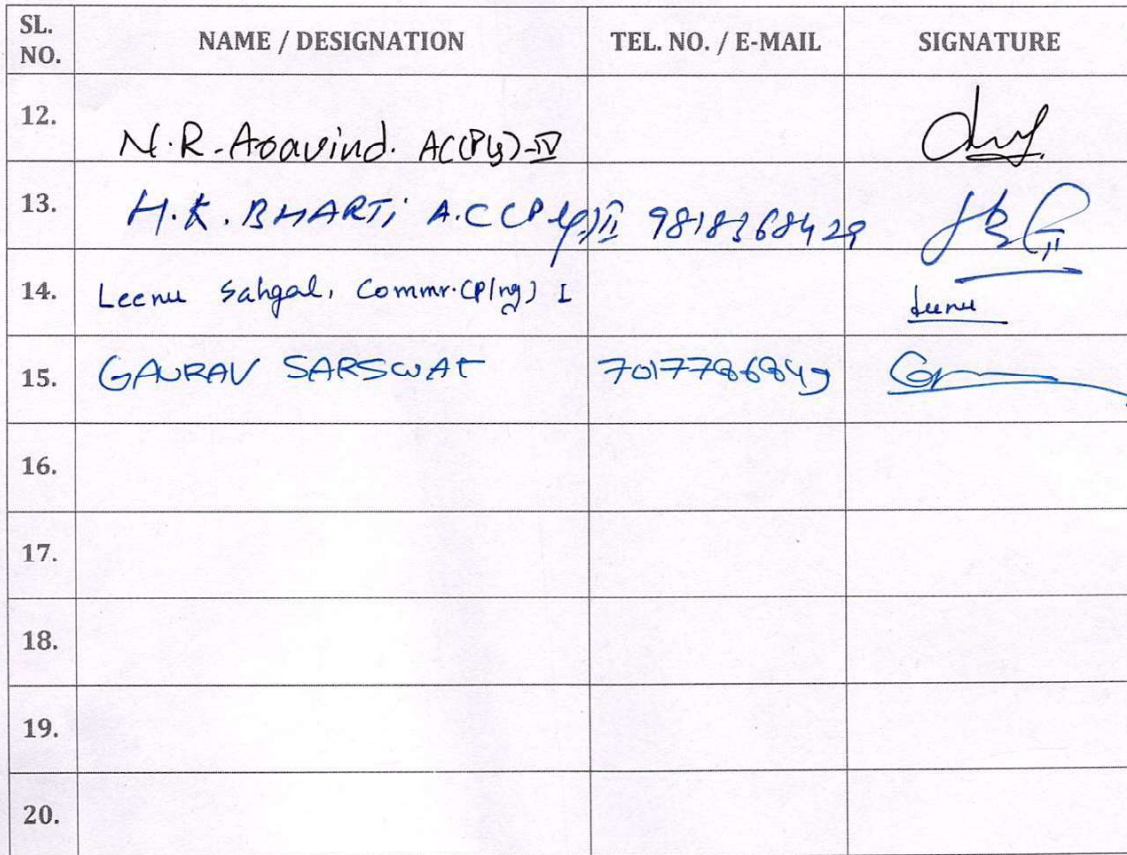 SL. NO. NAME / DESIGNATION TEL. NO. / E-MAIL SIGNATURE
12. N.R. Aravind. AC(Plg)-IV
13. H.K. BHARTi A.C(Plg)II 9818368429
14. Leenu Sahgal, Commr.(Plng) I Leenu
15. GAURAV SARSWAT 7017786849
16.
17.
18.
19.
20.